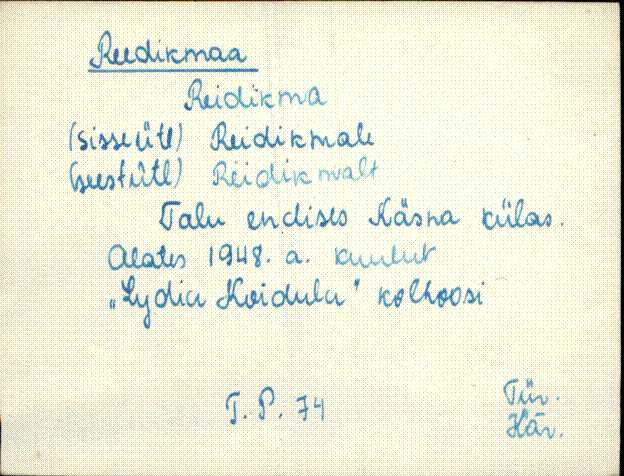 Reedikmaa
Reidikma
(sisseütl) Reidikmale
(seestütl) Reidikmalt
Talu endises Käsna külas.
Alates 1948. a. kuulut
"Lydia Koidula" kolhoosi
T. P. 74
Tür.
Kär.